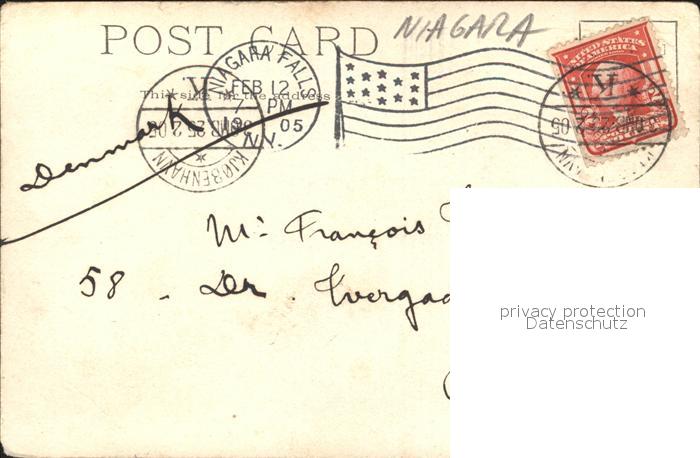 POST CARD
NIAGARA
This side for the address
NIAGARA FALLS
FEB 12
7 PM
19 05
N.Y.
K
KJØBENHAVN
UNITED STATES
OF AMERICA
K
Denmark
Mr: François
58 - Dr.
privacy protection
Datenschutz